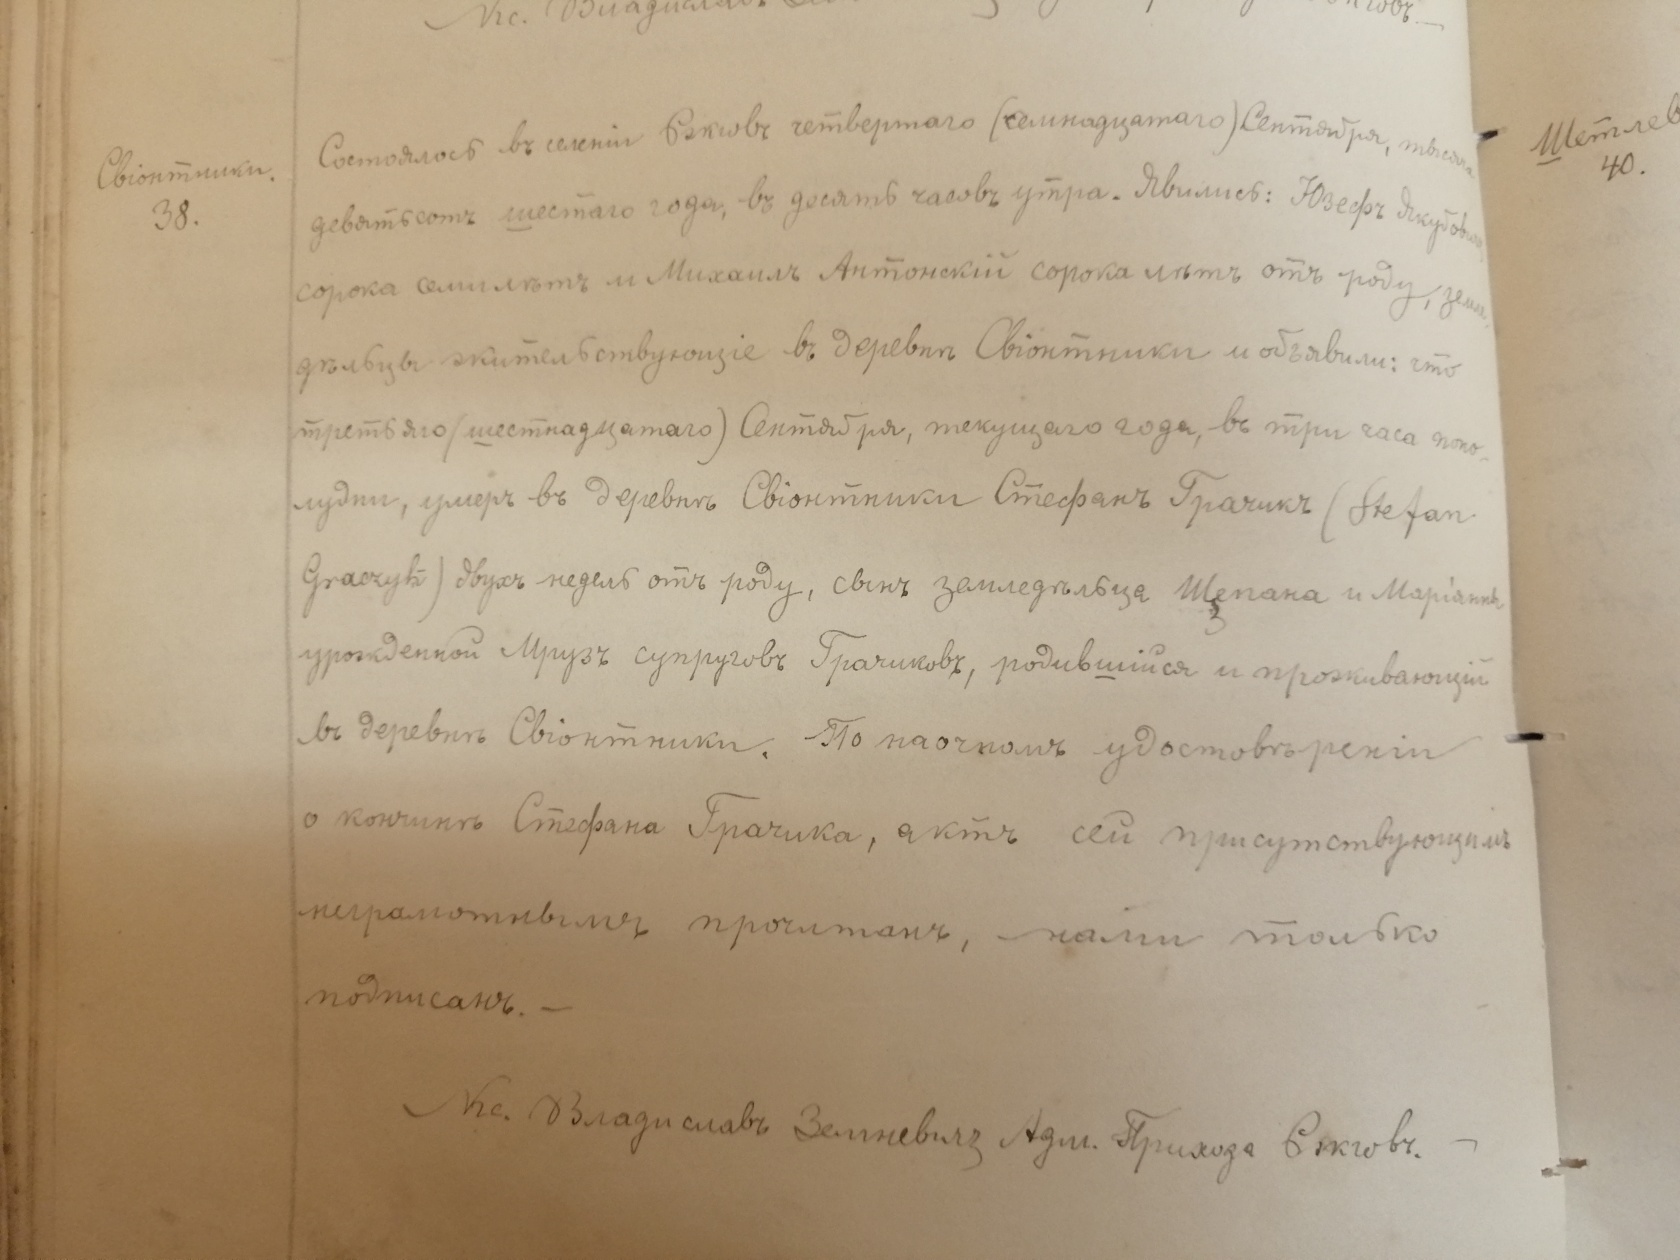 Кс. Владиславъ
Свіонтники.
38.
Состоялось въ селеніи Бжковъ четвертаго (семнадцатаго) Сентября, тысяча
девятьсотъ шестаго года, въ десять часовъ утра. Явились: Юзефъ Якубовскій
сорока семи лѣтъ и Михаилъ Антонскій сорока лѣтъ отъ роду, земле-
дѣльцы жительствующіе въ деревнѣ Свіонтники и объявили: что
третьяго (шестнадцатаго) Сентября, текущаго года, въ три часа попо-
лудни, умеръ въ деревнѣ Свіонтники Стефанъ Грачикъ (Stefan
Graczyk) двухъ недель отъ роду, сынъ земледѣльца Щепана и Маріанны
урожденной Мрузъ супруговъ Грачиковъ, родившійся и проживающій
въ деревнѣ Свіонтники. По наочномъ удостовѣреніи
о кончинѣ Стефана Грачика, актъ сей присутствующимъ
неграмотнымъ прочитанъ, нами только
подписанъ. —
Кс. Владиславъ Адм. Прихода Бжковъ. —
Щетлев
40.